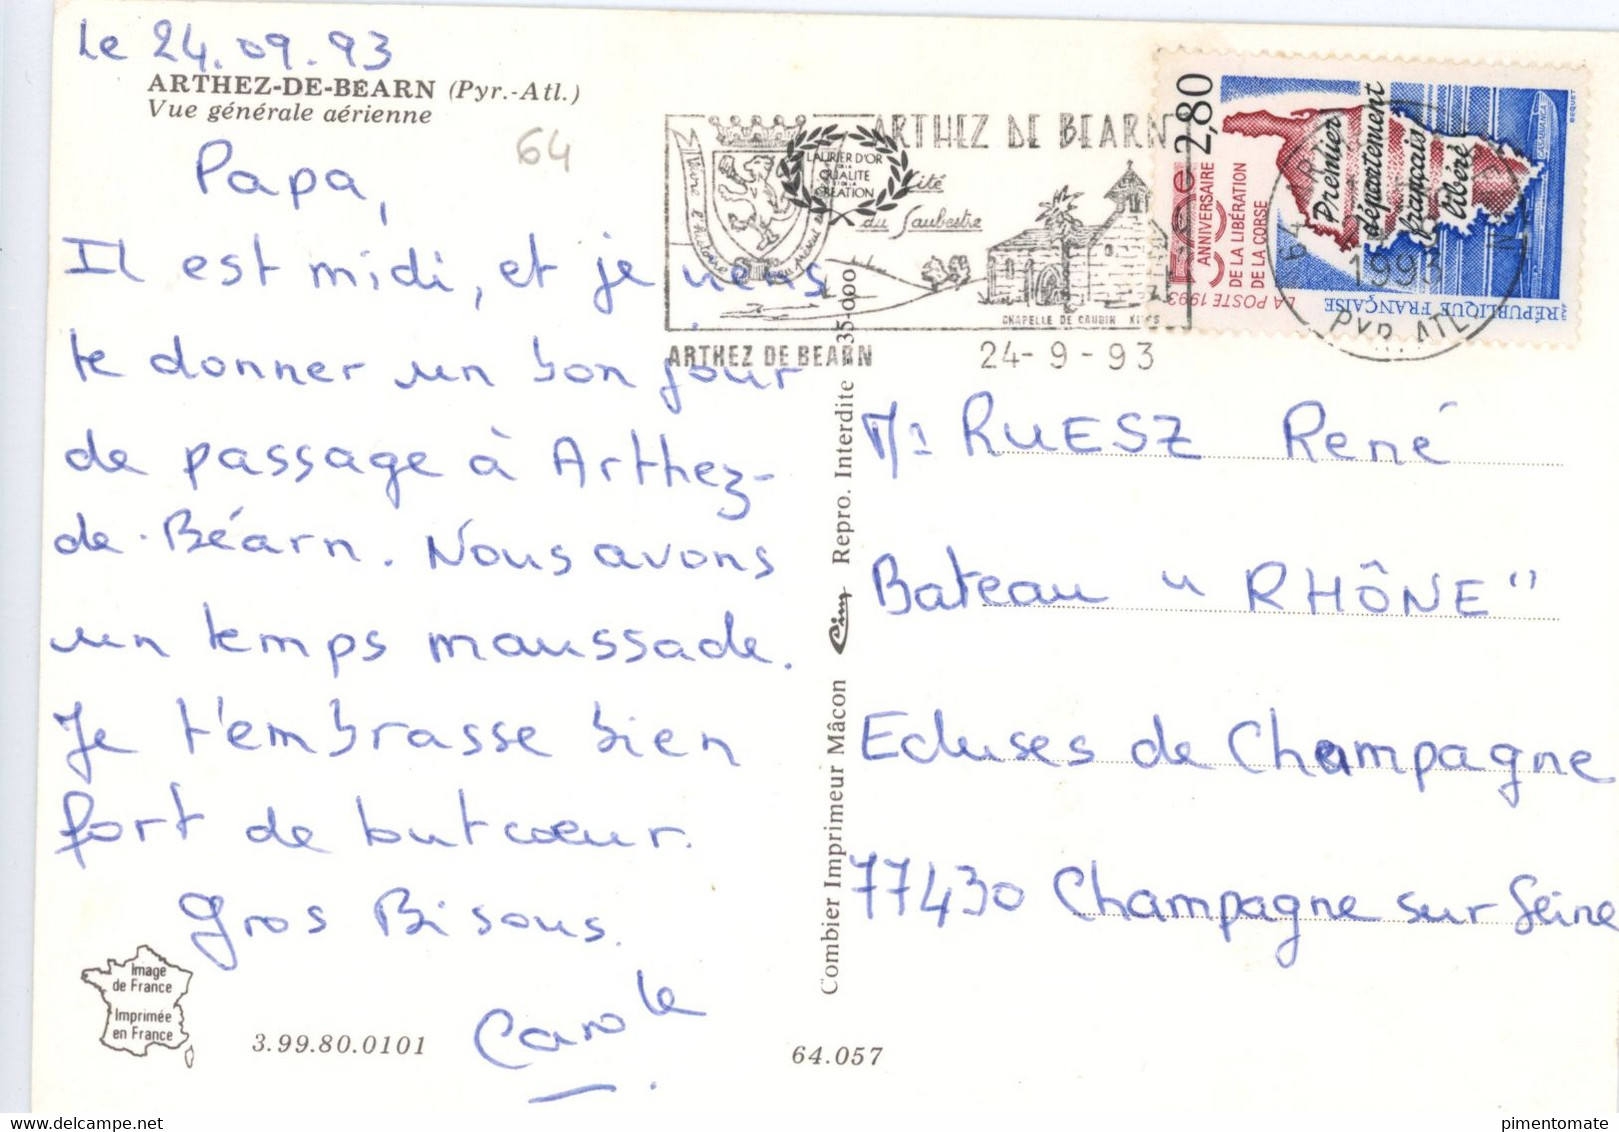 Le 24.09.93
ARTHEZ-DE-BÉARN (Pyr.-Atl.)
Vue générale aérienne
64
Papa,
Il est midi, et je viens
te donner un bon jour
de passage à Arthez-
de-Béarn. Nous avons
un temps maussade.
Je t'embrasse bien
fort de tout cœur.
Gros Bisous.
Carole
Image
de France
Imprimée
en France
3.99.80.0101
64.057
Combier Imprimeur Mâcon Cim Repro. Interdite 35-000
LAURIER D'OR
DE LA
QUALITE
ET DE LA
CREATION
ARTHEZ DE BEARN
Cité
du Saubestre
CHAPELLE DE CAUBIN
ARTHEZ DE BEARN
24-9-93
2,80
50e
ANNIVERSAIRE
DE LA LIBÉRATION
DE LA CORSE
LA POSTE 1993
Premier
département
français
libéré
RÉPUBLIQUE FRANÇAISE
CASABIANCA
BEQUET
64
1993
PYR. ATL.
Mr RUESZ René
Bateau "RHÔNE"
Ecluses de Champagne
77430 Champagne sur Seine
delcampe.net
pimentomate